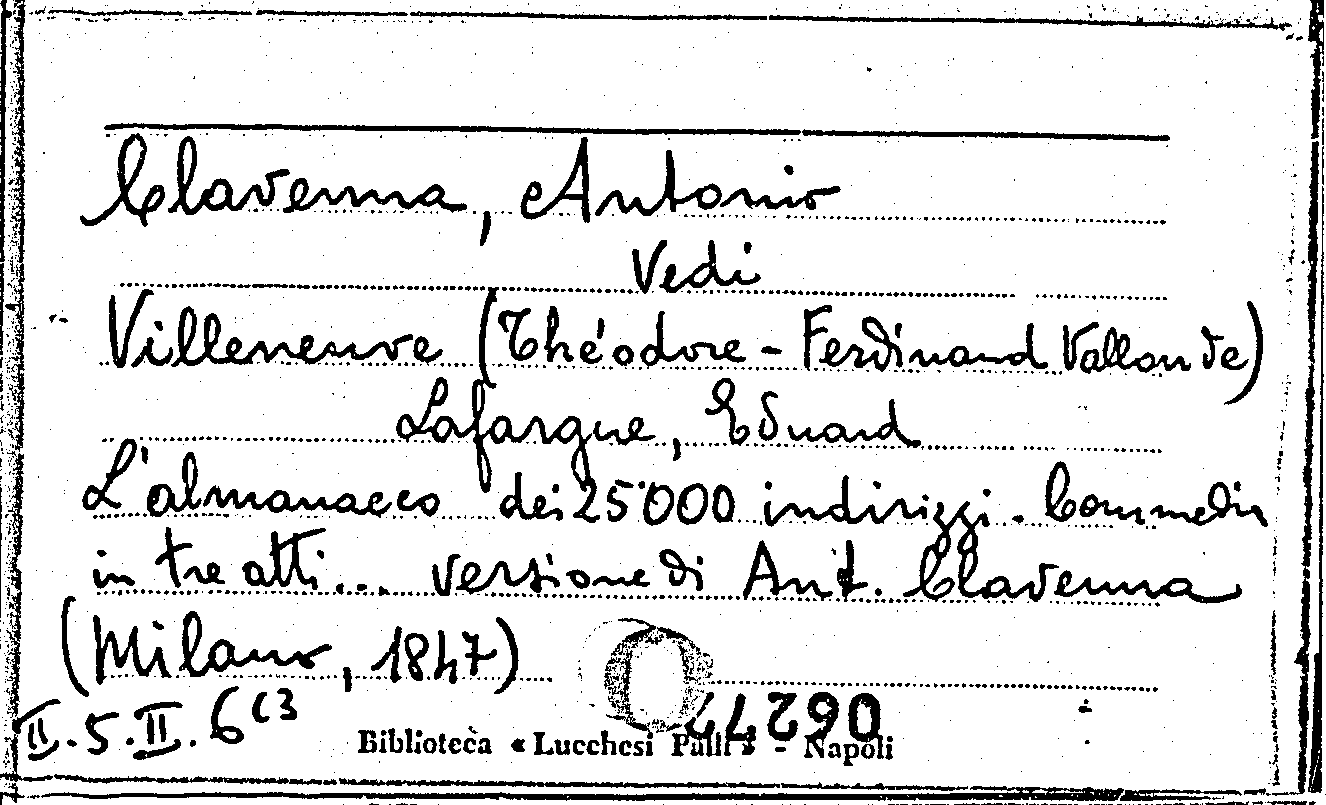 Clavenna, Antonio
Vedi
Villeneuve (Théodore-Ferdinand Vallon de)
Lafargue, Eduard
L'almanacco dei 25000 indirizzi. Commedia
in tre atti... versione di Ant. Clavenna
(Milano, 1847)
II.5.II.6(3
Biblioteca « Lucchesi Palli » - Napoli